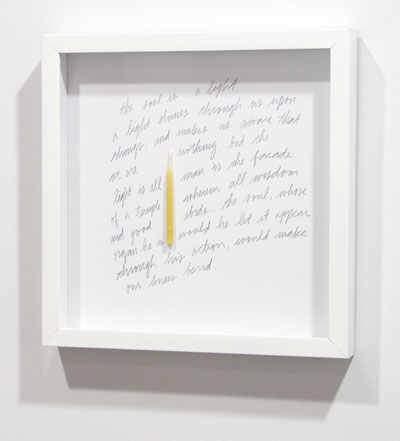 the soul is a light
a light shines through us upon
things, and makes us aware that
we are nothing, but the
light is all man is the facade
of a temple wherein all wisdom
and good abide... the soul, whose
organ he is would he let it appear
through his action, would make
our knees bend.